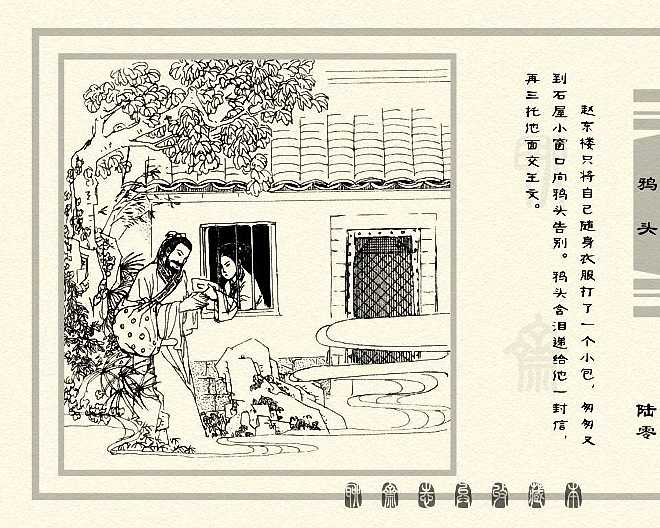 赵东楼只将自己随身衣服打了一个小包，匆匆又
到石屋小窗口向鸦头告别。鸦头含泪递给他一封信，
再三托他面交王文。
鸦头
陆零
聊斋志异收藏本